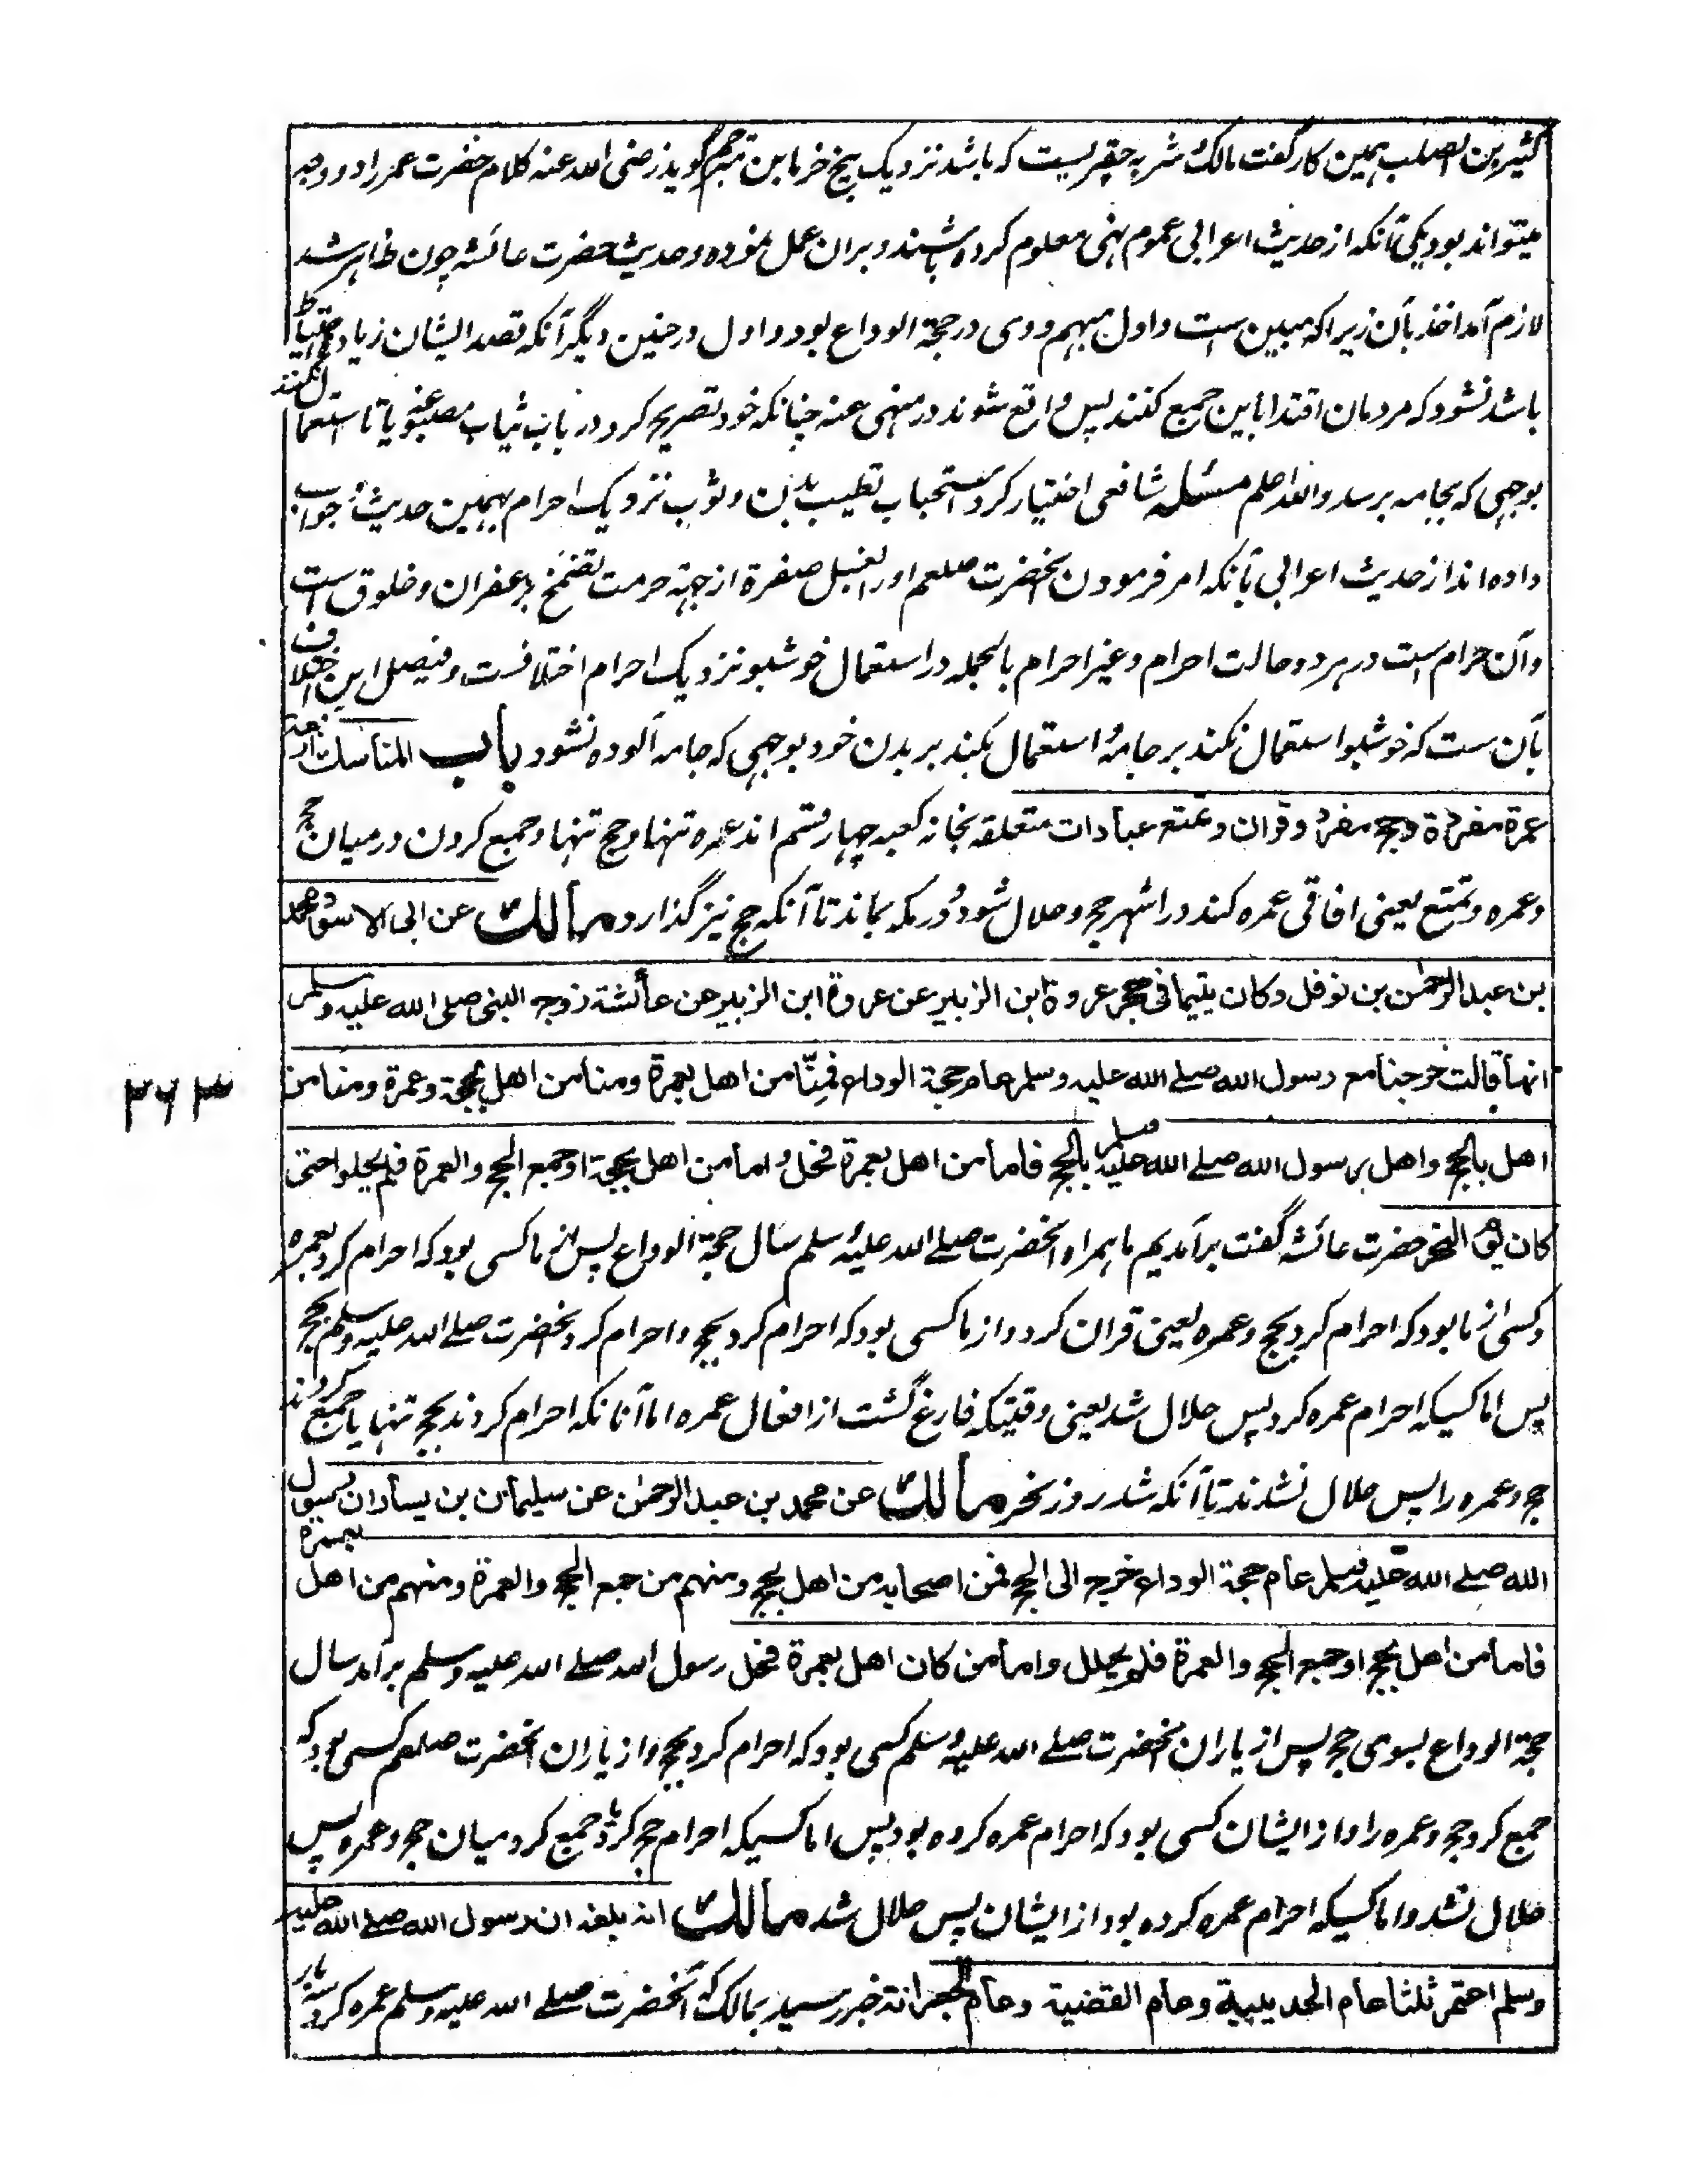 کثیر بن الصلب ہمین کار گفت مالک شربہ حفریست کہ باشد نزدیک بیخ خرما بن مترجم گوید رضی اللہ عنہ کلام حضرت عمر را دو وجہ
میتواند بود یکی آنکہ از حدیث اعرابی عموم نہی معلوم کردہ باشند و بران عمل نمودہ و حدیث حضرت عائشہ چون ظاہر شد
لازم آمد اخذ بآن زیرا کہ مبین ست و اول مبہم و وی در حجۃ الوداع بود و اول در حنین دیگر آنکہ قصد ایشان زیادہ احتیاط
باشد نشود کہ مردمان اقتدا باین جمیع کنند پس واقع شوند در منہی عنہ چنانکہ خود تصریح کرد در باب ثیاب مصبغہ و یا تا استعمال نکنند
بوجہی کہ بجامہ برسد واللہ اعلم مسئلہ شافعی اختیار کرد استحباب تطییب بدن و ثوب نزدیک احرام بہمین حدیث و جواب
دادہ اند از حدیث اعرابی بآنکہ امر فرمودن آنحضرت صلعم اورا بغسل صفرۃ از جہۃ حرمت تضمخ بزعفران و خلوق است
و آن حرام است در ہر دو حالت احرام و غیر احرام بالجملہ در استعمال خوشبو نزدیک احرام اختلافست و فیصل این اختلاف
بآن ست کہ خوشبو استعمال نکند بر جامہ و استعمال بکند بر بدن خود بوجہی کہ جامہ آلودہ نشود باب المناسك اربعة
عمرة مفردة وحج مفرد وقران وتمتع عبادات متعلقہ بخانہ کعبہ چہار قسم اند عمرہ تنہا و حج تنہا و جمع کردن درمیان حج
و عمرہ و تمتع یعنی افاقی عمرہ کند در اشہر حج و حلال شود و در مکہ بماند تا آنکہ حج نیز گذارد مالك عن ابی الاسود محمد
بن عبد الرحمٰن بن نوفل وکان یتیما فی حجر عروة ابن الزبیر عن عروة ابن الزبیر عن عائشة زوجه النبی صلی الله علیه وسلم
انها قالت خرجنا مع رسول الله صلے الله علیه وسلم عام حجة الوداع فمنّا من اهل بعمرة ومنا من اهل بحجة وعمرة ومنا من
اهل بالحج واهل رسول الله صلے الله علیه وسلم بالحج فاما من اهل بعمرة فحل و اما من اهل بحجة او جمع الحج والعمرة فلم یحلوا حتی
کان یوم النحر حضرت عائشہ گفت برآمدیم ما ہمراہ آنحضرت صلے اللہ علیہ وسلم سال حجۃ الوداع پس از ما کسی بود کہ احرام کرد بعمرہ
و کسی از ما بود کہ احرام کرد بحج و عمرہ یعنی قران کرد و از ما کسی بود کہ احرام کرد بحج و احرام کرد آنحضرت صلے اللہ علیہ وسلم بحج
پس اما کسیکہ احرام عمرہ کرد پس حلال شد یعنی وقتیکہ فارغ گشت از افعال عمرہ اما آنانکہ احرام کردند بحج تنہا یا جمع کردند
حج و عمرہ را پس حلال نشدند تا آنکہ شد روز نحر مالك عن محمد بن عبد الرحمٰن عن سلیمان بن یسار ان رسول
الله صلے الله علیه وسلم عام حجة الوداع خرج الی الحج فمن اصحابه من اهل بحج ومنهم من جمع الحج والعمرة ومنهم من اهل بعمرة
فاما من اهل بحج او جمع الحج والعمرة فلم یحلل واما من کان اهل بعمرة فحل رسول اللہ صلے اللہ علیہ وسلم برآمد سال
حجۃ الوداع بسوی حج پس از یاران آنحضرت صلے اللہ علیہ وسلم کسی بود کہ احرام کرد بحج و از یاران آنحضرت صلعم کسی بود کہ
جمع کرد حج و عمرہ را و از ایشان کسی بود کہ احرام عمرہ کردہ بود پس اما کسیکہ احرام حج کرد یا جمع کرد میان حج و عمرہ پس
حلال نشد و اما کسیکہ احرام عمرہ کردہ بود از ایشان پس حلال شد مالك انه بلغه ان رسول الله صلے الله علیه
وسلم اعتمر ثلثا عام الحدیبیة وعام القضیة وعام الجعرانة خبر رسید بمالک کہ آنحضرت صلے اللہ علیہ وسلم عمرہ کرد سہ بار
۲۶۳